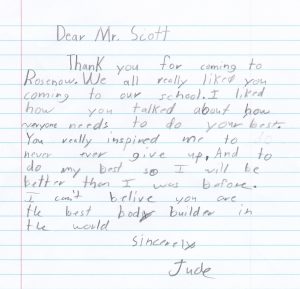 Dear Mr. Scott
Thank you for coming to
Rosenow. We all really liked you
coming to our school. I liked
how you talked about how
everyone needs to do your best.
You really inspired me to
never ever give up, And to
do my best so I will be
better than I was before.
I can't belive you are
the best body builder in
the world
Sincerely
Jude